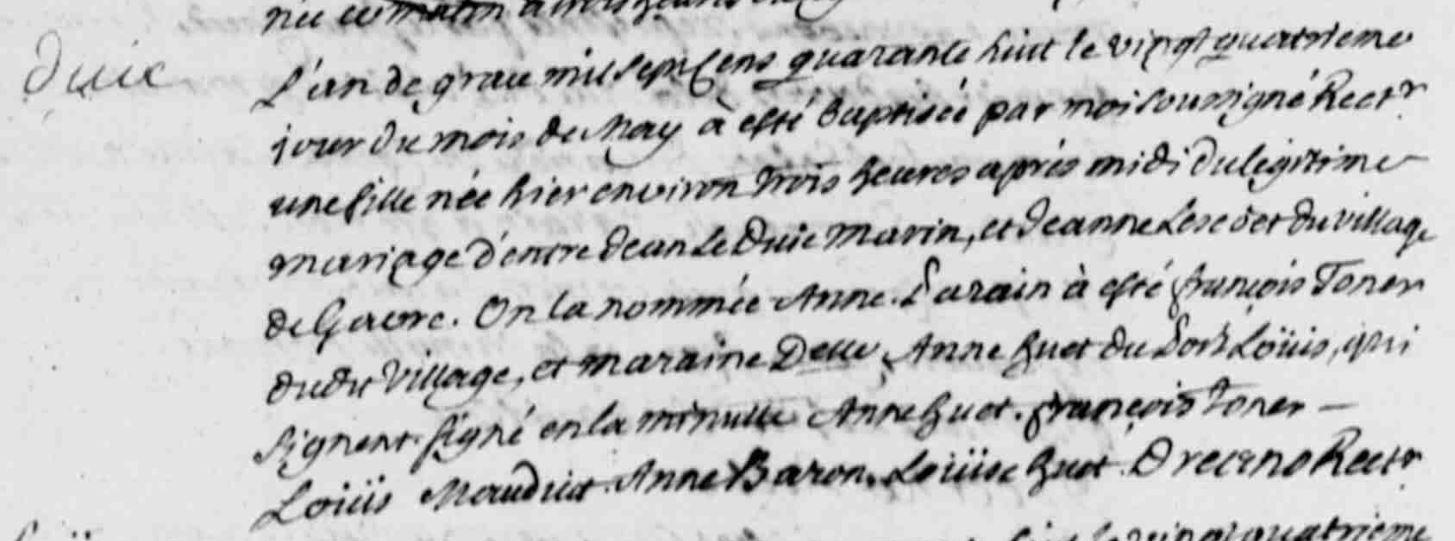 née ce matin à trois heures
Duic
L'an de grace mil sept cens quarante huit le vingt quatrieme
jour du mois de May à esté baptisée par moi soussigné Rectr
une fille née hier environ trois heures aprés midi du légitime
mariage d'entre Jean Le Duic marin, et Jeanne du village
de Gavre. On la nommée Anne. Parain à esté françois Toner
dudit village, et maraine Delle Anne huet du Port Loüis, qui
signent. signé en la minutte Anne huet. françois Toner —
Loüis Mauduit. Anne Baron. Loüise huet. Drecano Rectr
le vingt quatrieme